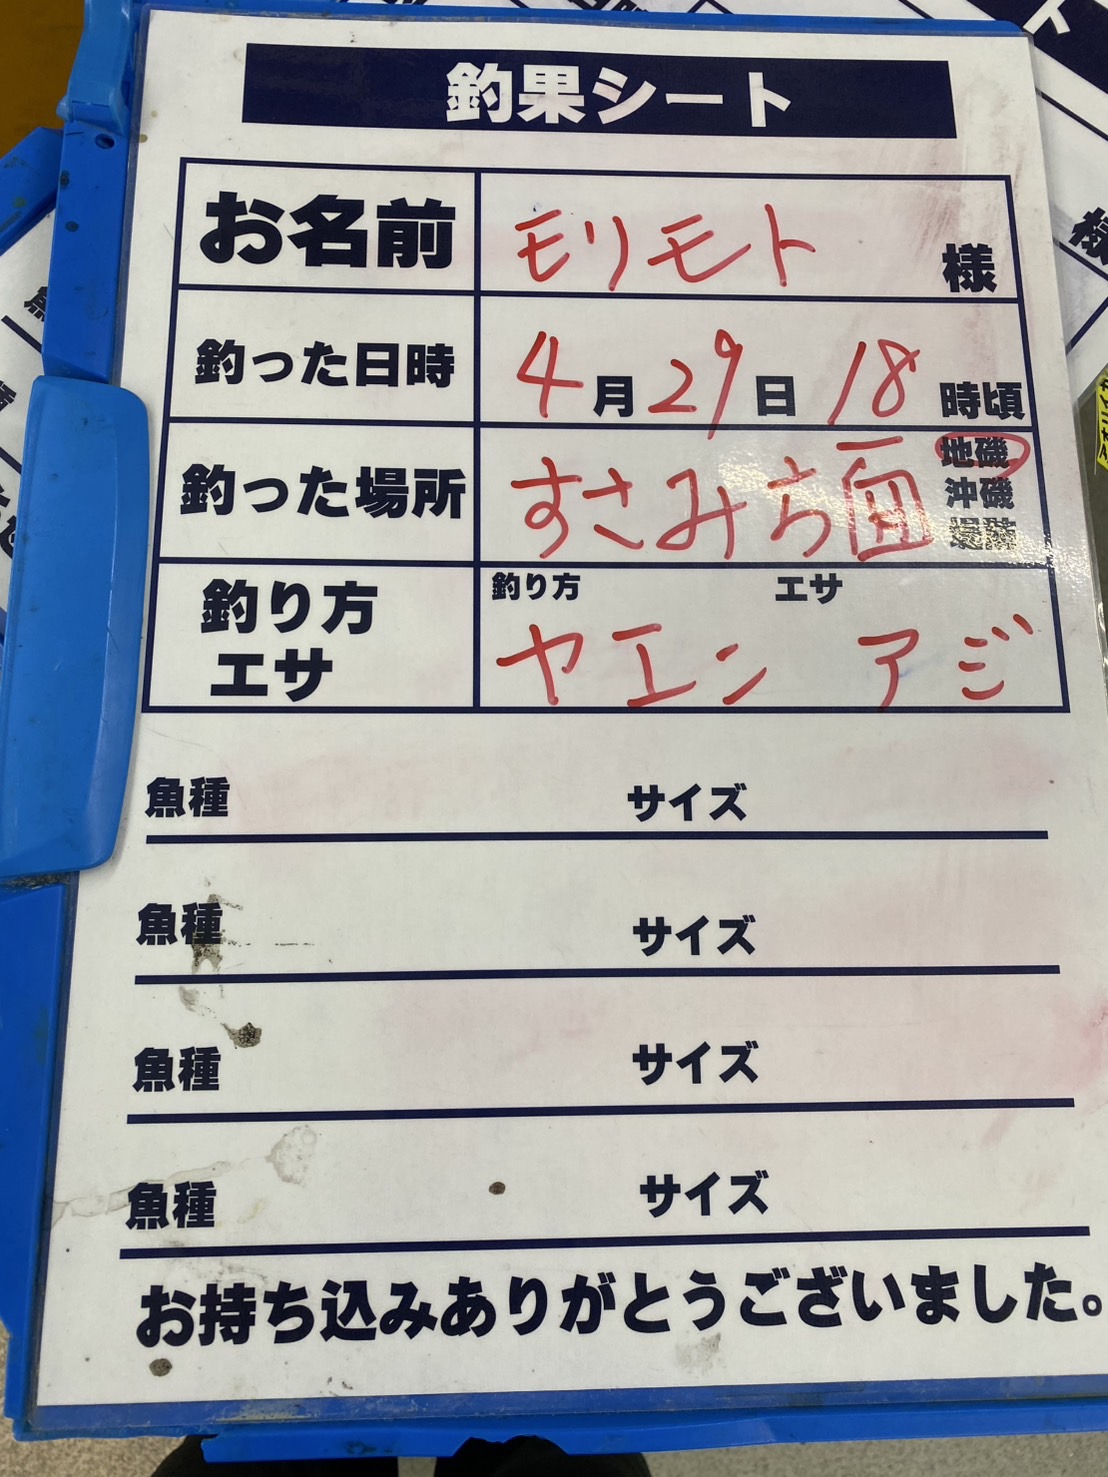 釣果シート
お名前 モリモト 様
釣った日時 4月29日18時頃
釣った場所 すさみ方面 地磯
沖磯
堤防
釣り方 エサ
釣り方
エサ
ヤエン アジ
魚種 サイズ
魚種 サイズ
魚種 サイズ
魚種 サイズ
お持ち込みありがとうございました。